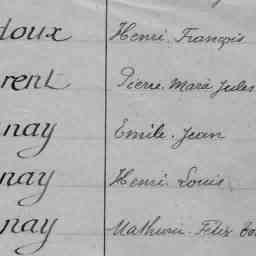 doux Henri. François
rent Pierre. Marie Jules
nay Emile. Jean
nay Henri. Louis
nay Mathieu. Félix